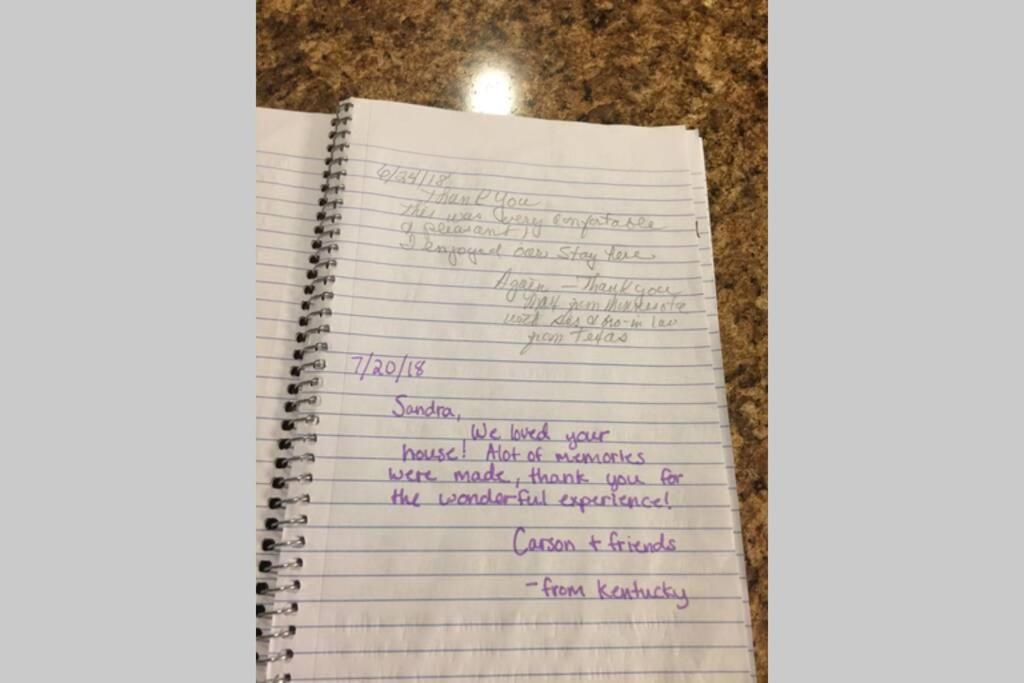 6/24/18
Thank You
This was (very comfortable
& pleasant)
I enjoyed our stay here
Again - Thank you
from Minnesota
with Sis & bro-in law
from Texas
7/20/18
Sandra,
We loved your
house! Alot of memories
were made, thank you for
the wonderful experience!
Carson + friends
- from Kentucky